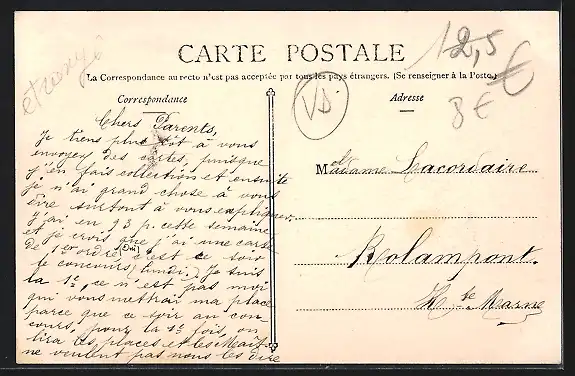 CARTE POSTALE
La Correspondance au recto n'est pas acceptée par tous les pays étrangers. (Se renseigner à la Poste.)
Correspondance
Chers Parents,
Je tiens plus tôt à vous
envoyer des cartes, puisque
j'en fais collection et ensuite
je n'ai grand chose à vous
dire surtout à vous expliquer.
j'ai eu 93 p. cette semaine
et je crois que j'ai une carte
de 1er ordre, (Oui) c'est ce soir
le concours (lundi.) Je suis
la 1e, ce n'est pas moi
qui vous mettrai ma place
parce que ce soir au con-
cours, pour la 1e fois, on
lira les places et les
ne veulent pas nous les dire
Adresse
Madame Lacordaire
Rolampont.
Hte Marne
VD.
12,5 €
8 €